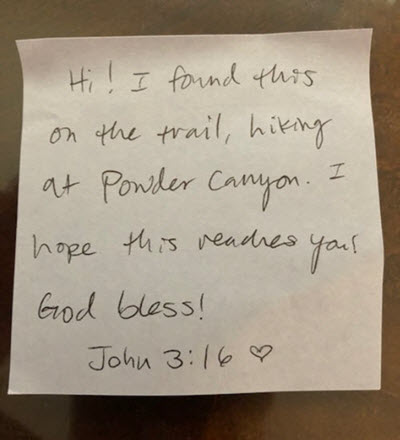 Hi! I found this
on the trail, hiking
at Powder Canyon. I
hope this reaches you!
God bless!
John 3:16 ♡